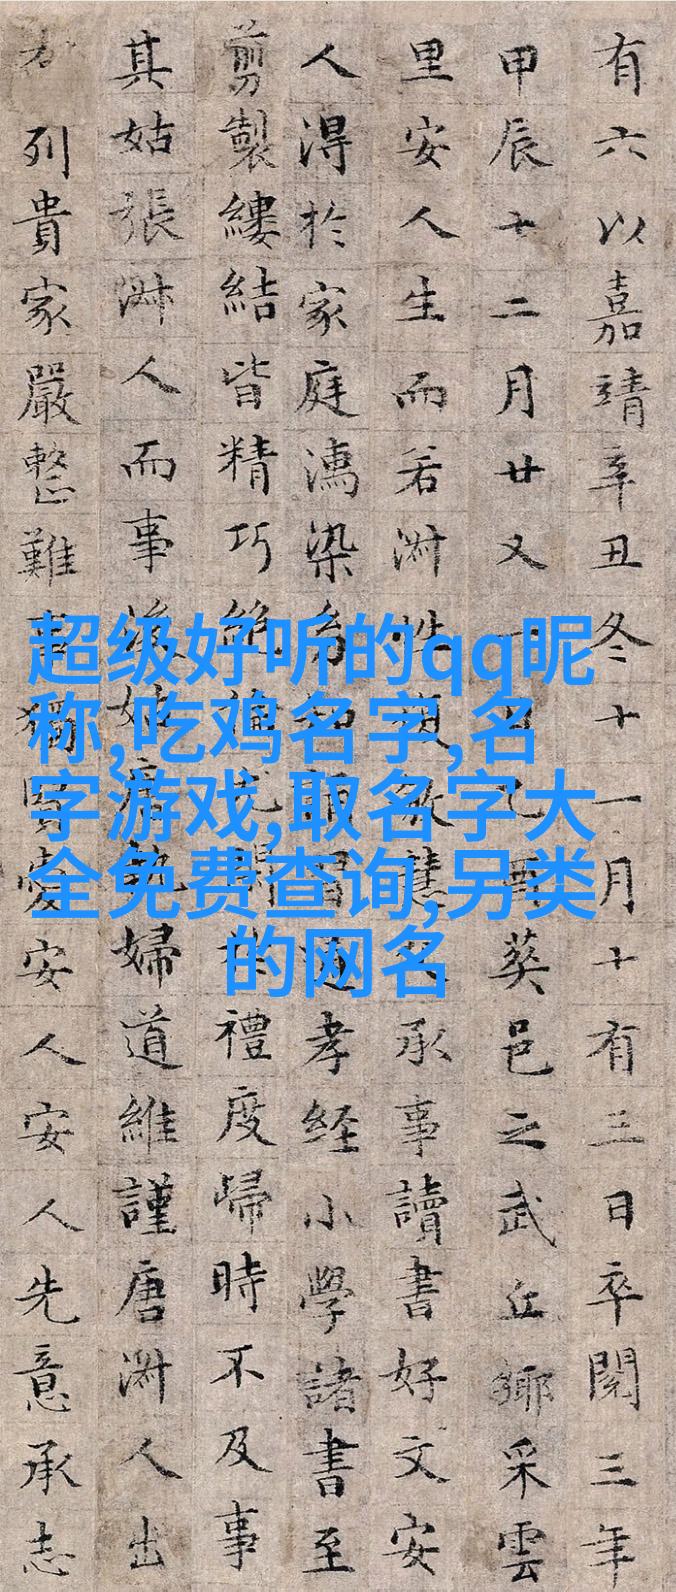 有六以嘉靖辛丑冬十一月十有三日卒閱三年
甲辰十二月廿又一日乙酉葬邑之武丘鄉采雲
里安人生而若淑性 敏慧 承事讀書好文安
人得於家庭濡染 孝经小學諸書至
剪製縷結皆精巧絶 禮度歸時不及事
其姑張淑人而事後姑 婦道維謹唐淑人出
列貴家嚴整難事獨 安人安人先意承志
超级好听的qq昵
称,吃鸡名字,名
字游戏,取名字大
全免费查询,另类
的网名